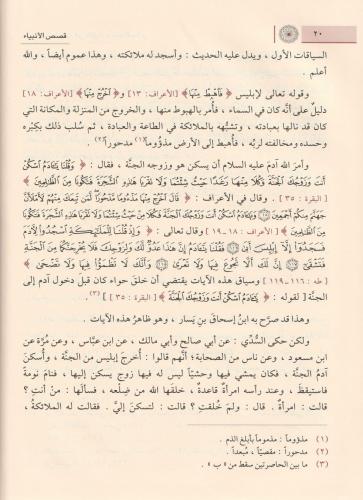 ٢٠ قصص الأنبياء
السياقات الأول ، ويدل عليه الحديث : وأسجد له ملائكته ، وهذا عموم أيضاً ، والله
أعلم .
وقوله تعالى لإبليس ﴿ فَاهْبِطْ مِنْهَا ﴾ [الأعراف: ١٣] و﴿ اخْرُجْ مِنْهَا ﴾ [الأعراف: ١٨]
دليلٌ على أنَّه كان في السماء ، فأُمر بالهبوط منها ، والخروج من المنزلة والمكانة التي
كان قد نالها بعبادته ، وتشبُّهه بالملائكة في الطاعة والعبادة ، ثم سُلب ذلك بكِبْره
وحسده ومخالفته لربِّه ، فأُهبط إلى الأرض مذْؤوماً(١) مدحوراً(٢) .
وأمرَ اللهُ آدمَ عليه السلام أن يسكن هو وزوجه الجنَّة ، فقال : ﴿ وَقُلْنَا يَا آدَمُ اسْكُنْ
أَنتَ وَزَوْجُكَ الْجَنَّةَ وَكُلَا مِنْهَا رَغَدًا حَيْثُ شِئْتُمَا وَلَا تَقْرَبَا هَٰذِهِ الشَّجَرَةَ فَتَكُونَا مِنَ الظَّالِمِينَ ﴾
[البقرة : ٣٥] . وقال في الأعراف : ﴿ قَالَ اخْرُجْ مِنْهَا مَذْءُومًا مَّدْحُورًا لَّمَن تَبِعَكَ مِنْهُمْ لَأَمْلَأَنَّ
جَهَنَّمَ مِنكُمْ أَجْمَعِينَ ﴿١٨﴾ وَيَا آدَمُ اسْكُنْ أَنتَ وَزَوْجُكَ الْجَنَّةَ فَكُلَا مِنْ حَيْثُ شِئْتُمَا وَلَا تَقْرَبَا هَٰذِهِ الشَّجَرَةَ فَتَكُونَا
مِنَ الظَّالِمِينَ ﴾ [الأعراف : ١٨ـ١٩] وقال تعالى : ﴿ وَإِذْ قُلْنَا لِلْمَلَائِكَةِ اسْجُدُوا لِآدَمَ
فَسَجَدُوا إِلَّا إِبْلِيسَ أَبَىٰ ﴿١١٦﴾ فَقُلْنَا يَا آدَمُ إِنَّ هَٰذَا عَدُوٌّ لَّكَ وَلِزَوْجِكَ فَلَا يُخْرِجَنَّكُمَا مِنَ الْجَنَّةِ
فَتَشْقَىٰ ﴿١١٧﴾ إِنَّ لَكَ أَلَّا تَجُوعَ فِيهَا وَلَا تَعْرَىٰ ﴿١١٨﴾ وَأَنَّكَ لَا تَظْمَأُ فِيهَا وَلَا تَضْحَىٰ ﴾
[طه : ١١٦ـ١١٩] وسياق هذه الآيات يقتضي أن خلق حواء كان قبل دخول آدم إلى
الجنَّة [لقوله : ﴿ يَا آدَمُ اسْكُنْ أَنتَ وَزَوْجُكَ الْجَنَّةَ ﴾ [البقرة : ٣٥] ](٣) .
وهذا قد صرَّح به ابنُ إسحاق بن يَسار ، وهو ظاهرُ هذه الآيات .
ولكن حكى السُّدِّي : عن أبي صالح وأبي مالك ، عن ابن عبَّاس ، وعن مُرَّة عن
ابن مسعود ، وعن ناس من الصحابة ؛ أنَّهم قالوا : أُخرجَ إبليس من الجنَّة ، وأُسكنَ
آدمُ الجنَّة ، فكان يمشي فيها وحشيّاً ليس له فيها زوج يسكن إليها ، فنامَ نومةً
فاستيقظَ ، وعند رأسه امرأةٌ قاعدةٌ ، خلقها الله من ضِلَعه ، فسألها : مَنْ أنتِ ؟
قالت : امرأة . قال : ولمَ خُلقتِ ؟ قالت : لتسكنَ إليَّ . فقالت له الملائكةُ ،
(١) مذؤوماً : مذموماً بأبلغ الذم .
(٢) مدحوراً : مقصيّاً ، مُبعداً .
(٣) ما بين الحاصرتين سقط من « ب » .